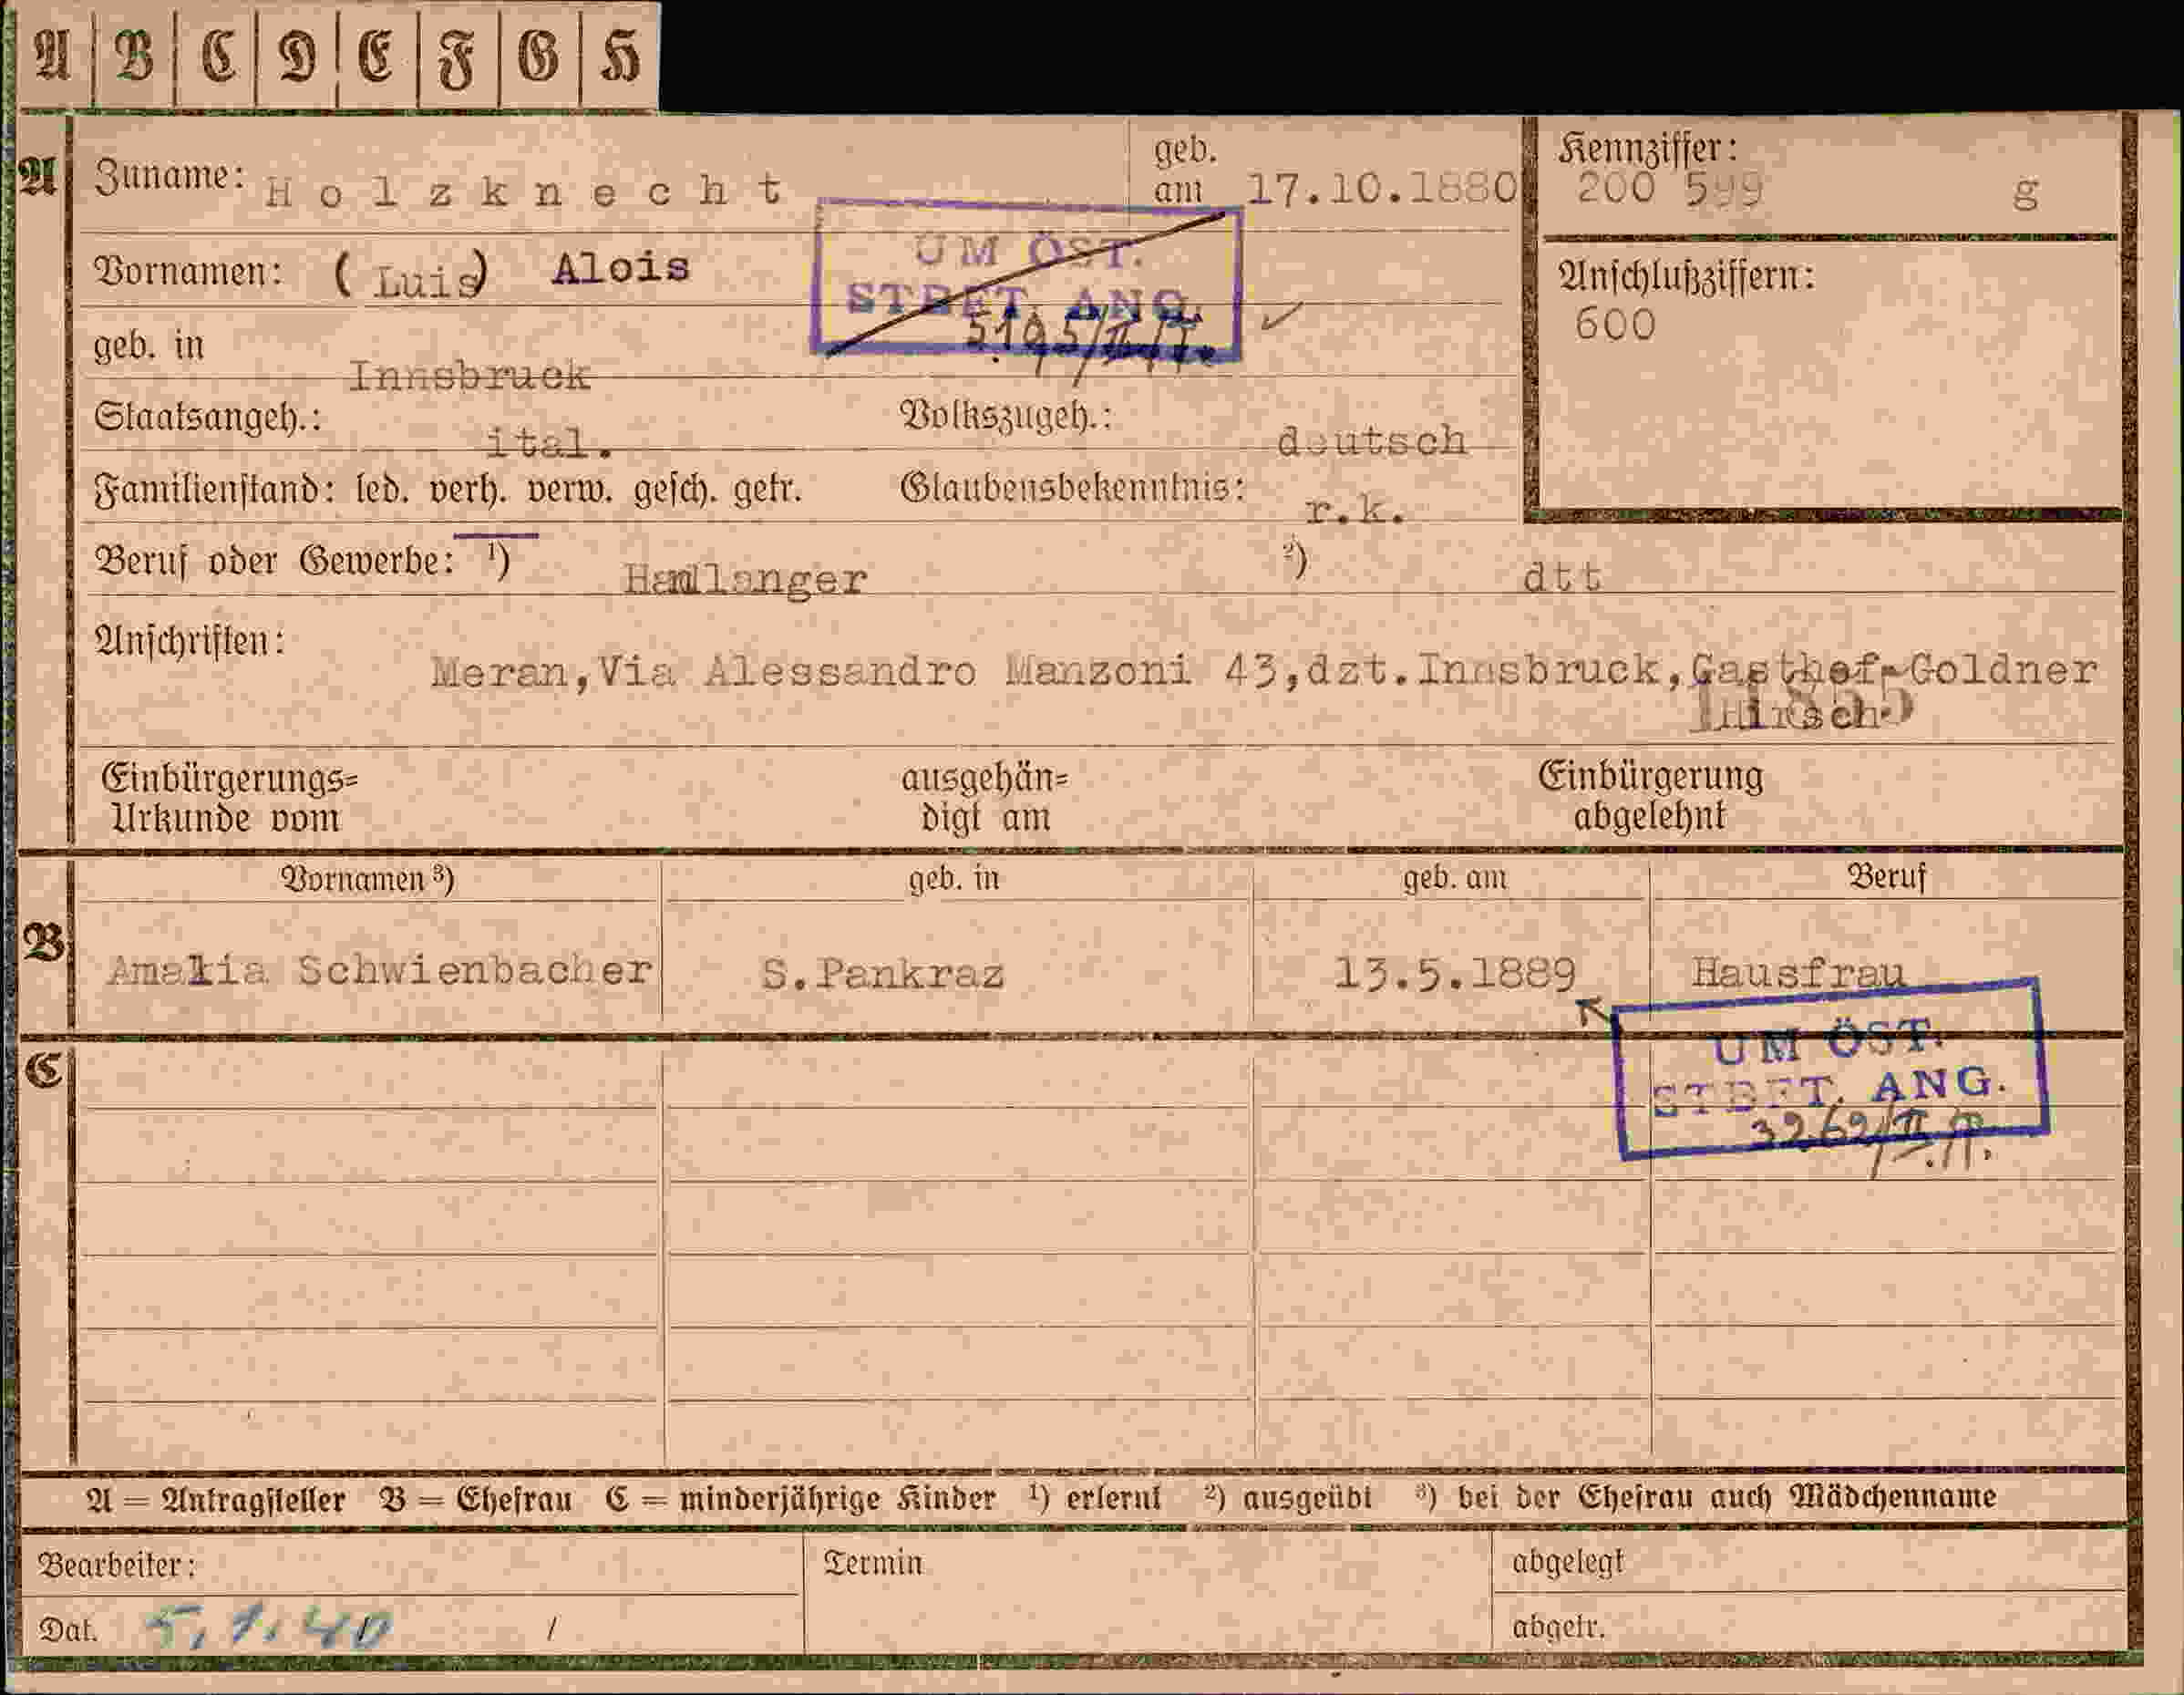 A B C D E F G H
A Zuname: Holzknecht geb. am 17.10.1880 Kennziffer: 200 599 g
Vornamen: (Luis) Alois
UM ÖST.
STBFT. ANG.
Anschlußziffern:
600
geb. in Innsbruck
Staatsangeh.: ital. Volkszugeh.: deutsch
Familienstand: led. verh. verw. gesch. getr. Glaubensbekenntnis: r.k.
Beruf oder Gewerbe: ¹) Handlanger ²) dtt
Anschriften: Meran,Via Alessandro Manzoni 43,dzt.Innsbruck,Gasthof-Goldner
Hirsch
Einbürgerungs= ausgehän= Einbürgerung
Urkunde vom digt am abgelehnt
Vornamen ³) geb. in geb. am Beruf
B Amalia Schwienbacher S.Pankraz 13.5.1889 Hausfrau
C
UM ÖST.
STBFT. ANG.
3262/II/T.
A = Antragsteller B = Ehefrau C = minderjährige Kinder ¹) erlernt ²) ausgeübt ³) bei der Ehefrau auch Mädchenname
Bearbeiter: Termin abgelegt
Dat. 5.1.40 / abgetr.